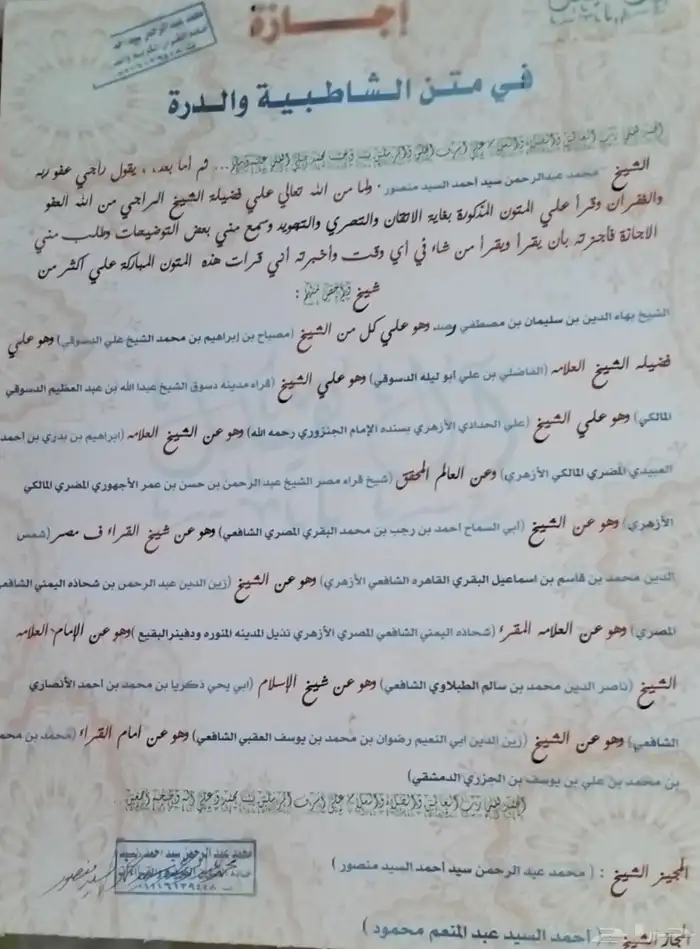 إجازة
محمد عبد الرحمن سيد احمد
في متن الشاطبية والدرة
الحمد لله رب العالمين والصلاة والسلام علي اشرف الخلق والمرسلين سيدنا محمد صلي الله عليه وسلم ... ثم أما بعد، ، يقول راجي عفو ربه
الشيخ محمد عبدالرحمن سيد أحمد السيد منصور . ولما من الله تعالي علي فضيلة الشيخ الراجي من الله العفو
والغفران وقرأ علي المتون المذكورة بغاية الاتقان والتحري والتجويد وسمع مني بعض التوضيحات وطلب مني
الاجازة فأجزته بأن يقرأ ويقرأ من شاء في أي وقت وأخبرته أني قرات هذه المتون المباركة علي أكثر من
شيخ وأخص منهم :
الشيخ بهاء الدين بن سليمان بن مصطفي وصد وهو علي كل من الشيخ (مصباح بن إبراهيم بن محمد الشيخ علي الدسوقي) وهو علي
فضيله الشيخ العلامه (الفاضلي بن علي أبو ليله الدسوقي) وهو علي الشيخ (قراء مدينه دسوق الشيخ عبدا الله بن عبد العظيم الدسوقي
المالكي) وهو علي الشيخ (علي الحدادي الأزهري بسنده الإمام الجنزوري رحمه الله) وهو عن الشيخ العلامه (ابراهيم بن بدري بن احمد
العبيدي المصري المالكي الأزهري) وعن العالم المحقق (شيخ قراء مصر الشيخ عبدالرحمن بن حسن بن عمر الأجهوري المصري المالكي
الأزهري) وهو عن الشيخ (أبي السماح احمد بن رجب بن محمد البقري المصري الشافعي) وهو عن شيخ القراء ف مصر (شمس
الدين محمد بن قاسم بن اسماعيل البقري القاهره الشافعي الأزهري) وهو عن الشيخ (زين الدين عبد الرحمن بن شحاذه اليمني الشافعي
المصري) وهو عن العلامه المقرء (شحاذه اليمني الشافعي المصري الأزهري نذيل المدينه المنوره ودفينرالبقيع) وهو عن الإمام العلامه
الشيخ (ناصر الدين محمد بن سالم الطبلاوي الشافعي) وهو عن شيخ الإسلام (ابي يحي ذكريا بن محمد بن احمد الأنصاري
الشافعي) وهو عن الشيخ (زين الدين ابي النعيم رضوان بن محمد بن يوسف العقبي الشافعي) وهو عن امام القراء (محمد بن محمد
بن محمد بن علي بن يوسف بن الجزري الدمشقي)
الحمد لله رب العالمين والصلاة والسلام علي اشرف المرسلين سيدنا محمد وعلي آله وصحبه أجمعين
محمد عبد الرحمن سيد احمد
المجيز الشيخ : ( محمد عبد الرحمن سيد أحمد السيد منصور )
المجاز الشيخ ( أحمد السيد عبد المنعم محمود )